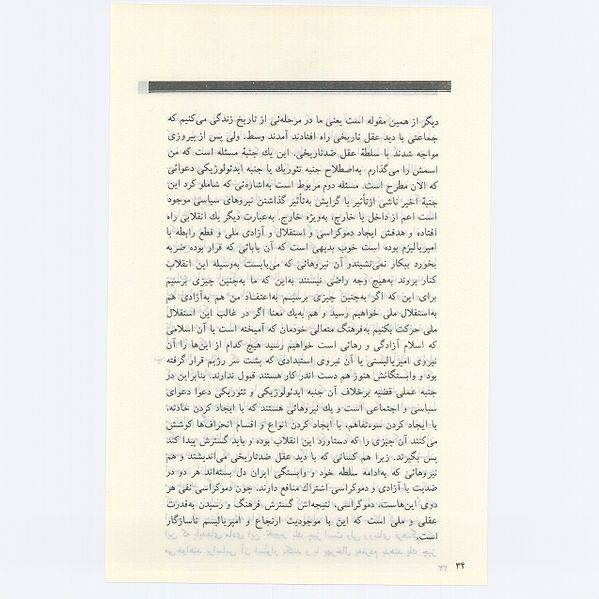 دیگر از همین مقوله است یعنی ما در مرحله‌ئی از تاریخ زندگی می‌کنیم که
جماعتی با دید عقل تاریخی راه افتادند آمدند وسط، ولی پس از پیروزی
مواجه شدند با سلطهٔ عقل ضدتاریخی، این یك جنبهٔ مسئله است که من
اسمش را می‌گذارم به‌اصطلاح جنبه تئوریك یا جنبه ایدئولوژیکی دعوائی
که الان مطرح است. مسئله دوم مربوط است به‌اشاره‌ئی که شاملو کرد این
جنبهٔ اخیر ناشی ازتأثیر یا گرایش به‌تأثیر گذاشتن نیروهای سیاسی موجود
است اعم از داخل یا خارج، به‌ویژه خارج. به‌عبارت دیگر یك انقلابی راه
افتاده و هدفش ایجاد دموکراسی و استقلال و آزادی ملی و قطع رابطه با
امپریالیزم بوده است خوب بدیهی است که آن بابائی که قرار بوده ضربه
بخورد بیکار نمی‌نشیندو آن نیروهائی که می‌بایست به‌وسیله این انقلاب
کنار بروند به‌هیچ وجه راضی نیستند به‌این که ما به‌چنین چیزی برسیم
برای این که اگر به‌چنین چیزی برسیم به‌اعتقاد من هم به‌آزادی هم
به‌استقلال ملی خواهیم رسید و هم به‌یك معنا اگر در غالب این استقلال
ملی حرکت بکنیم به‌فرهنگ متعالی خودمان که آمیخته است با آن اسلامی
که اسلام آزادگی و رهائی است خواهیم رسید هیچ کدام از این‌ها را آن
نیروی امپریالیستی یا آن نیروی استبدادی که پشت سر رژیم قرار گرفته
بود و وابستگانش هنوز هم دست اندر کار هستند قبول ندارند. بنابراین در
جنبه عملی قضیه برخلاف آن جنبه ایدئولوژیکی و تئوریکی دعوا دعوای
سیاسی و اجتماعی است و یك نیروهائی هستند که با ایجاد کردن حادثه،
با ایجاد کردن سوءتفاهم، با ایجاد کردن انواع و اقسام انحراف‌ها کوشش
می‌کنند آن چیزی را که دستاورد این انقلاب بوده و باید گسترش پیدا کند
پس بگیرند. زیرا هم کسانی که با دید عقل ضدتاریخی می‌اندیشند و هم
نیروهائی که به‌ادامه سلطه خود و وابستگی ایران دل بسته‌اند هر دو در
ضدیت با آزادی و دموکراسی اشتراك منافع دارند. چون دموکراسی نفی هر
دوی این‌هاست، دموکراسی، نتیجه‌اش گسترش فرهنگ و رسیدن به‌قدرت
عقلی و ملی است که این با موجودیت ارتجاع و امپریالیسم ناسازگار
است.
۳۴